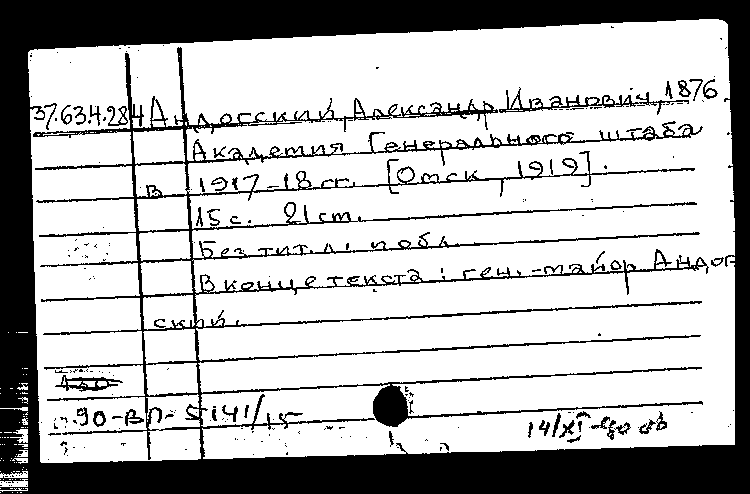 37.634.284 Андогский, Александр Иванович, 1876
Академия Генерального штаба
в 1917-18 гг. [Омск, 1919].
15 с. 21 cm.
Без тит. л. и обл
В конце текста: ген.-майор Андог
ский.
90-ВП-5141/15
14/XI-90